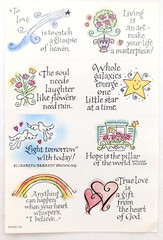 To love
is to catch
a glimpse
of heaven.
Living
is an art–
make your
life a
masterpiece!
The soul
needs
laughter
like flowers
need rain.
Whole
galaxies
emerge
from
one
little star
at a time.
Light tomorrow
with today!
ELIZABETH BARRETT BROWNING
Hope is the pillar
of the world.
Anything
can happen
when your heart
whispers,
"I believe..."
True love
is a
gift
from the
heart of God.